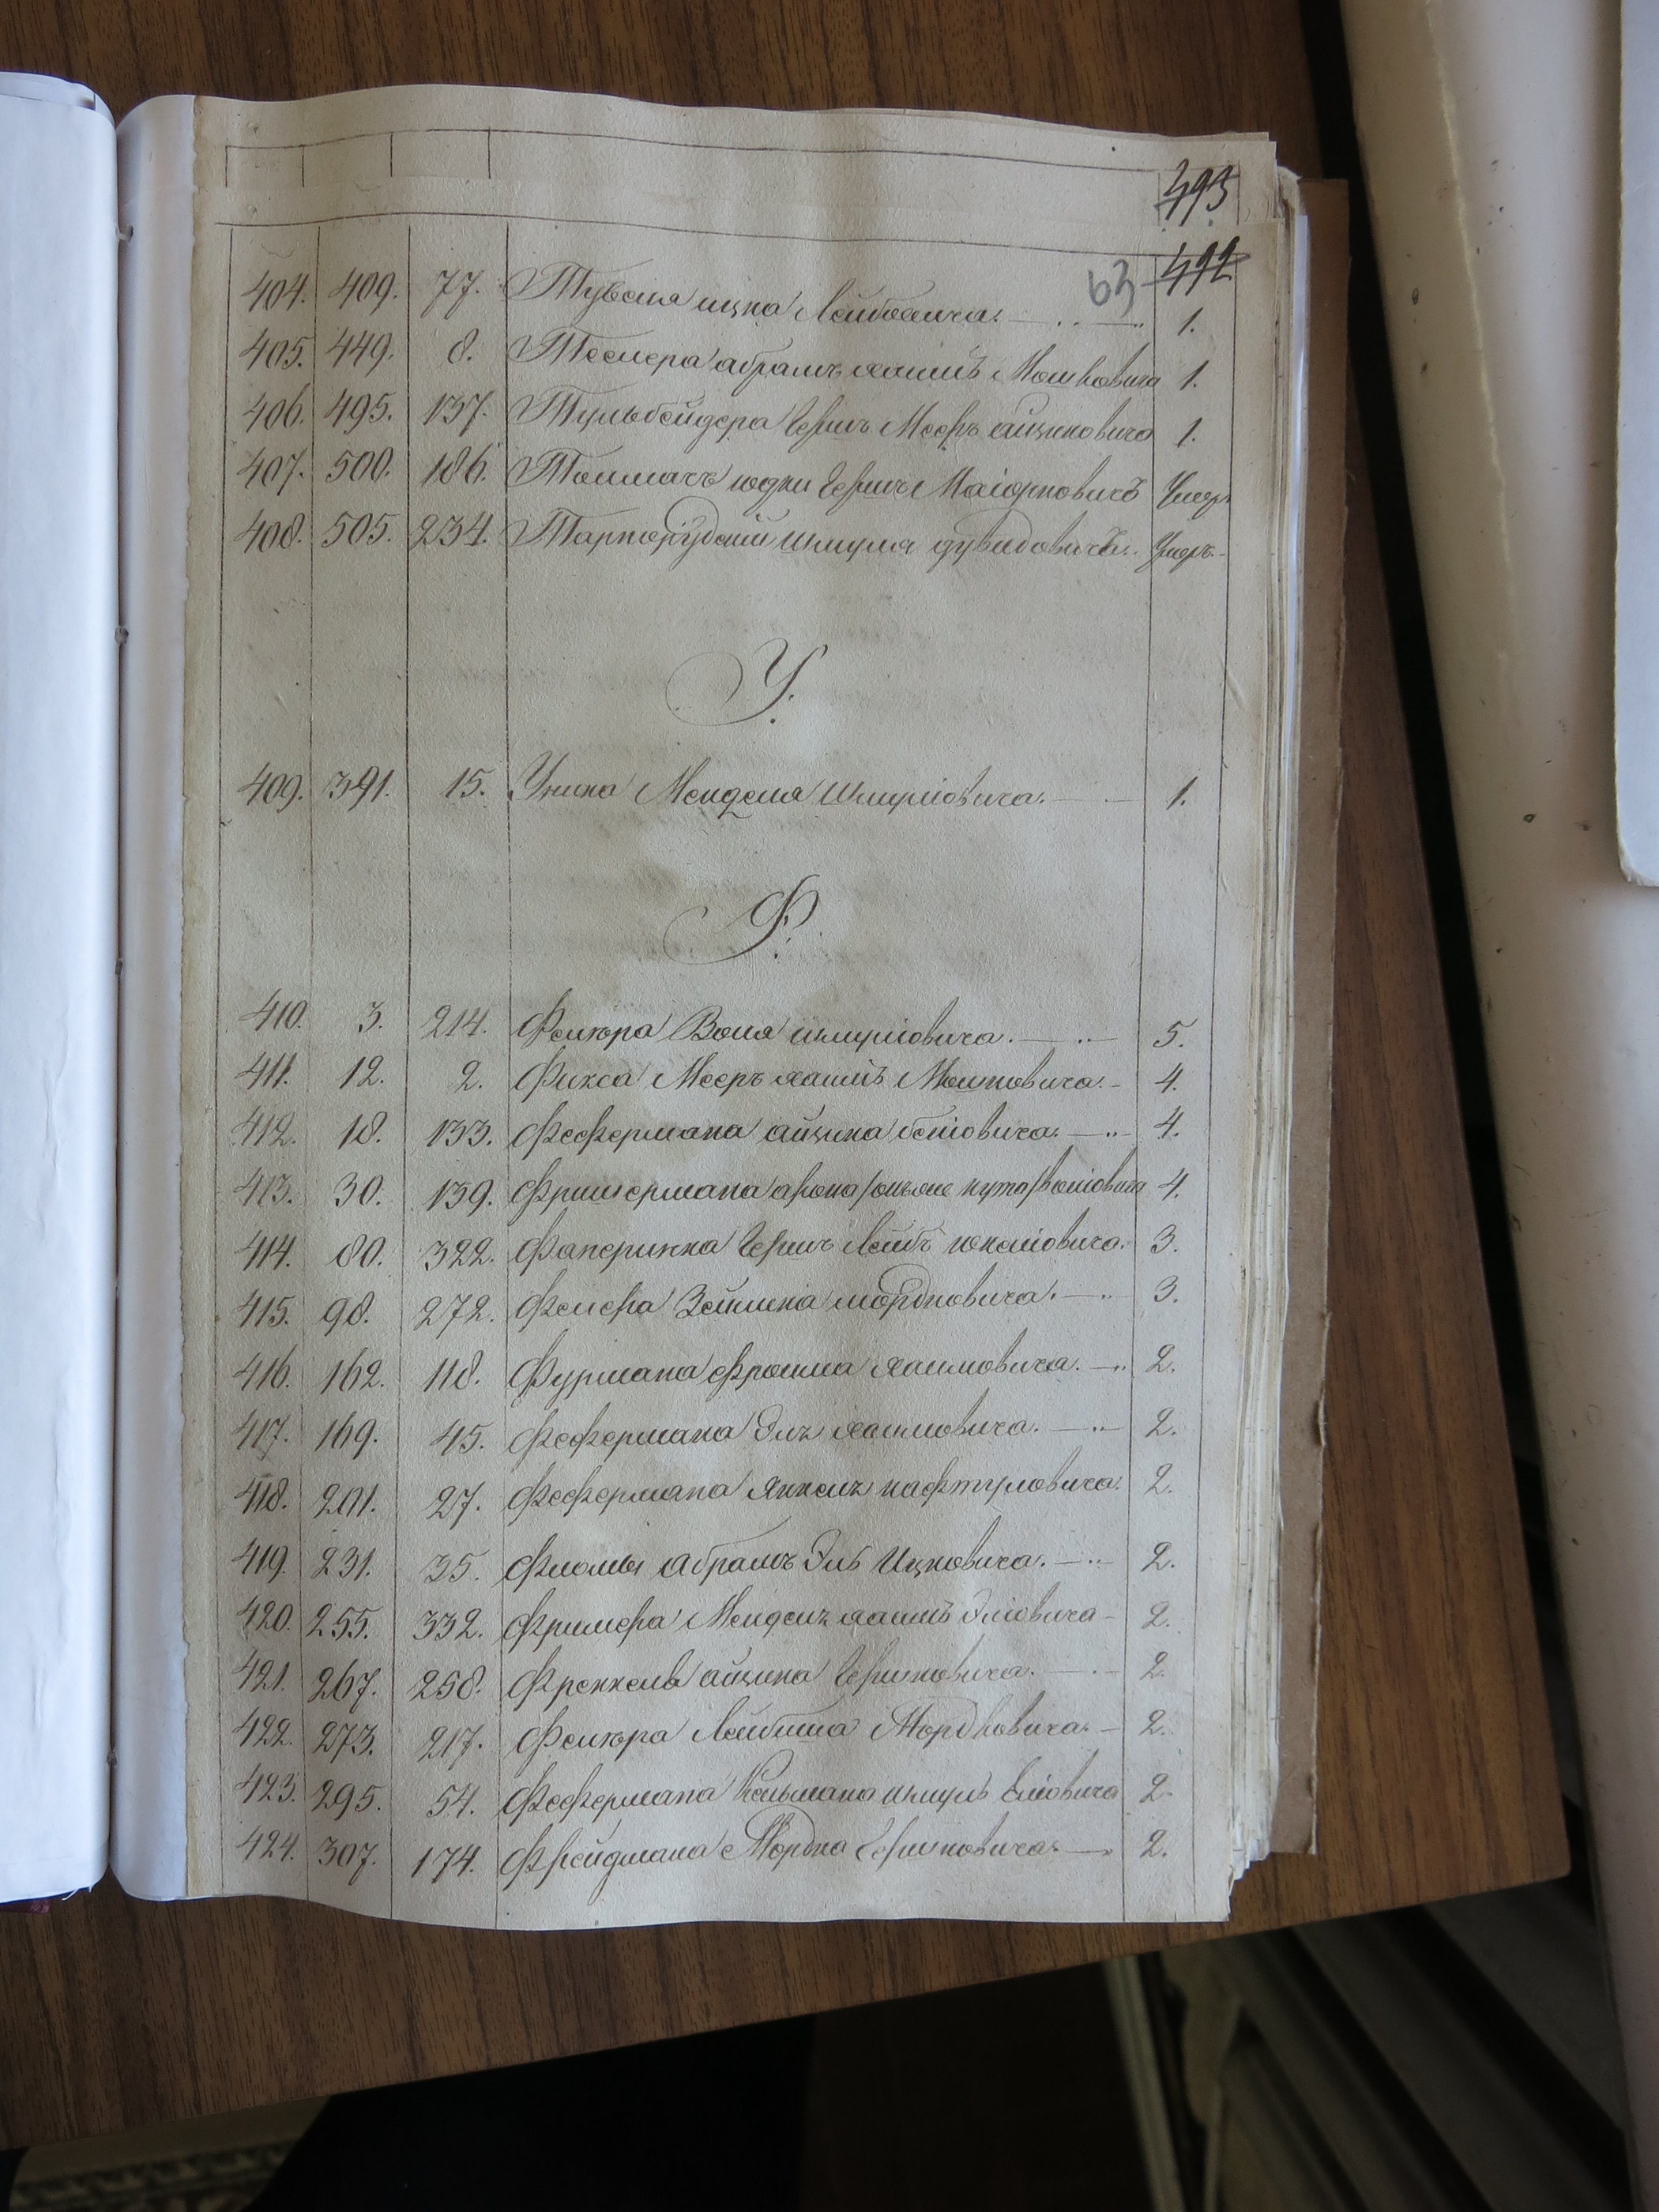 493
63 492
404. 409. 77. Тувеля ицка Лейбовича. 1.
405. 449. 8. Теслера абрамъ хаимъ Мошковича 1.
406. 495. 137. Тульбейдера Гершъ Меерь айциковича 1.
407. 500. 186. Толмачъ юдки Гершъ Маіорковичъ Умеръ
408. 505. 234. Тарпорудскій шмуля дувидовичъ. Умеръ.
У.
409. 391. 15. Уніка Менделя Шмуліовича. 1.
Ф.
410. 3. 214. Фелкора Воля шмуліовича. 5.
411. 12. 2. Фикса Мееръ хаимъ Мошковича. 4.
412. 18. 133. Фефермана айцика беніовича. 4.
413. 30. 139. Фришермана арона /онъ же кута/ воліовича 4.
414. 80. 322. Гершъ Лейбъ 3.
415. 98. 272. Фелера Зейлика мордковича. 3.
416. 162. 118. Фурмана Фроима хаимовича. 2.
417. 169. 45. Фефермана Эль хаимовича. 2.
418. 201. 27. Фефермана Янкель нафтуловича. 2.
419. 231. 35. абрамъ Эль Ицковича. 2.
420. 255. 332. Фримера Мендель хаимъ Эліовича 2.
421. 267. 258. Френкель айцика Гершковича. 2.
422. 273. 217. Фелкора Лейбиша Мордковича. 2.
423. 295. 54. Фефермана Кельмана шмуль Еліовича 2.
424. 307. 174. Фрейдмана Мордка Гершковича. 2.